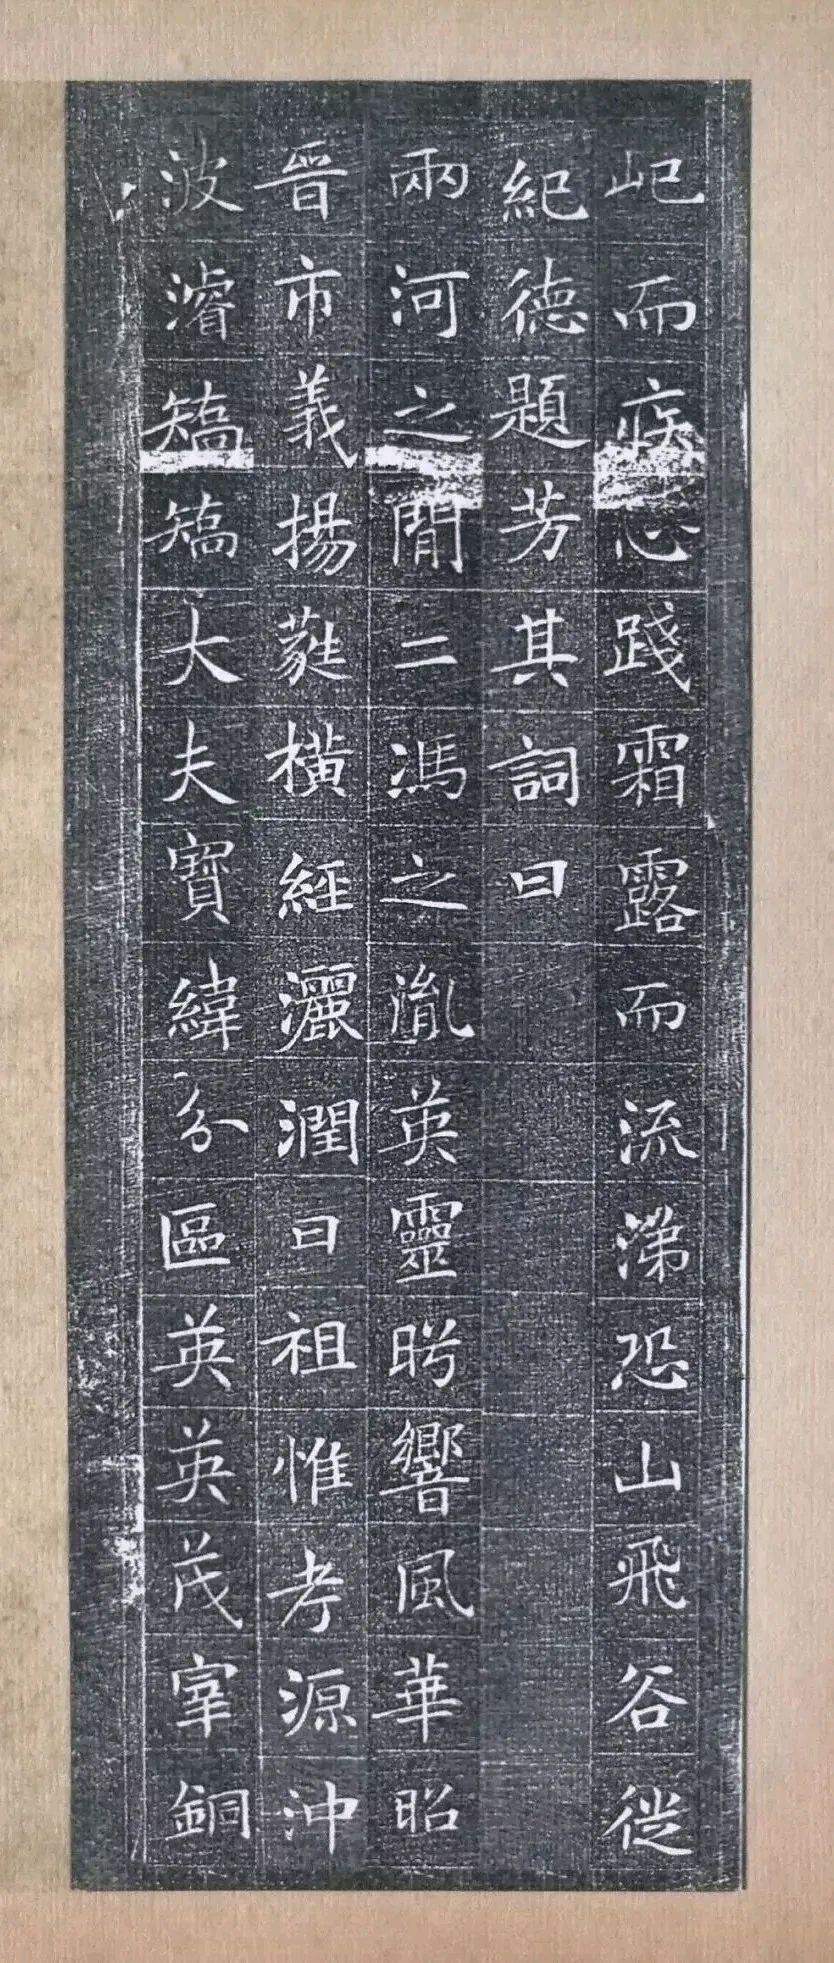 屺而疚心踐霜露而流涕恐山飛谷徙
紀德題芳其詞曰
兩河之閒二馮之胤英靈肹響風華昭
晉市義揚蕤橫經灑潤曰祖惟考源沖
波濬矯矯大夫寶緯分區英英茂宰銅